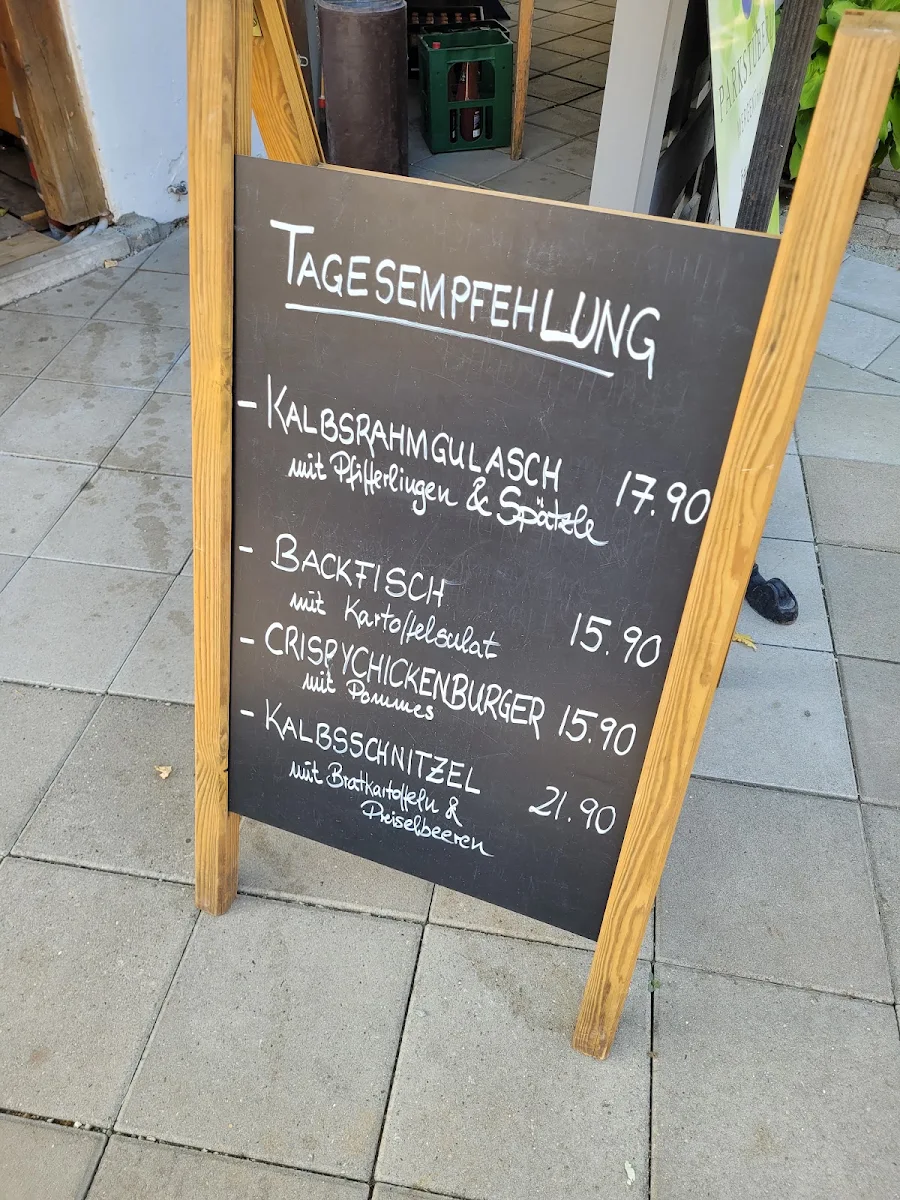 PARKSTÜBE
TAGESEMPFEHLUNG
- KALBSRAHMGULASCH
mit Pfifferlingen & Spätzle 17.90
- BACKFISCH
mit Kartoffelsalat 15.90
- CRISPYCHICKENBURGER 15.90
mit Pommes
- KALBSSCHNITZEL
mit Bratkartoffeln & 21.90
Preiselbeeren